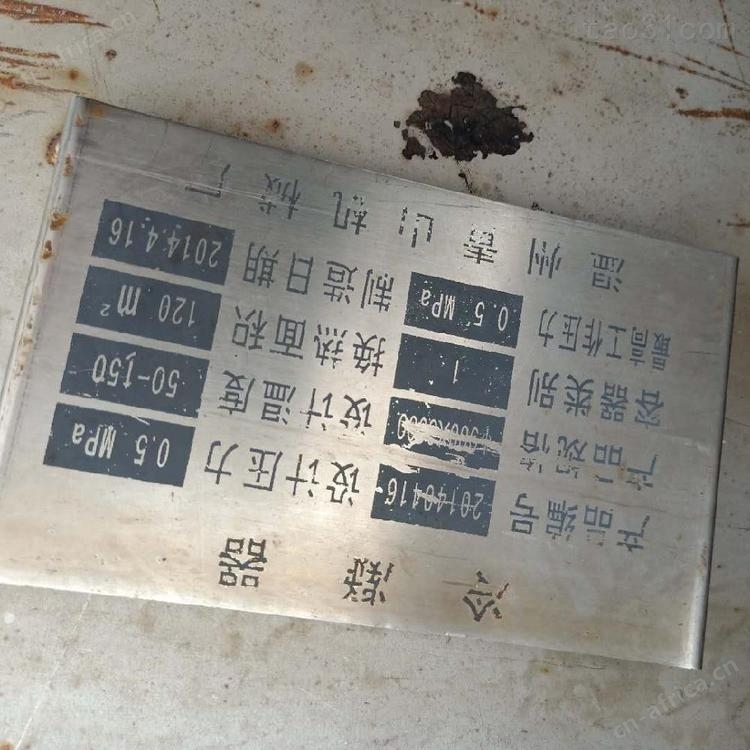 冷凝器
产品编号 20140416 设计压力 0.5 MPa
产品规格 设计温度 50-150
容器类别 1 换热面积 120 m²
最高工作压力 0.5 MPa 制造日期 2014.4.16
温州青山机械厂
tao31.com
cn-africa.cn